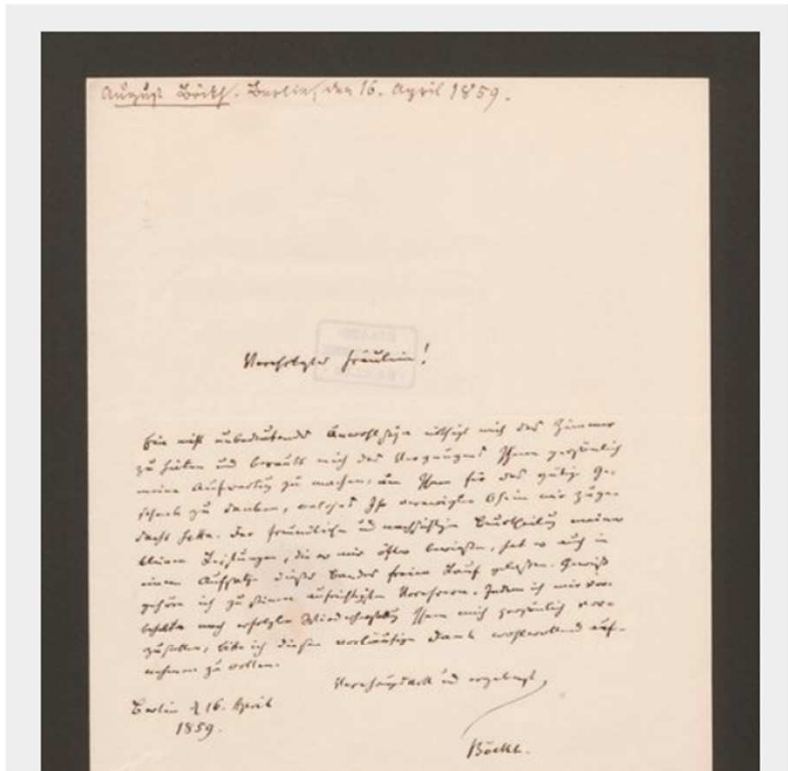 August Böckh. Berlin, den 16. April 1859.
Verehrtes Fräulein!
Ein nicht unbedeutendes Unwohlsein nöthigt mich das Zimmer
zu hüten und beraubt mich des Vergnügens Ihnen persönlich
meine Aufwartung zu machen, um Ihnen für das gütige Ge-
schenk zu danken, welches Ihr verewigter Oheim mir zuge-
dacht hatte. Der freundlichen und nachsichtigen Beurtheilung meiner
kleinen Leistungen, die er mir öfter bewiesen, hat er auch in
einem Aufsatze dieses Bandes freien Lauf gelassen. Gewiß
gehöre ich zu seinen aufrichtigsten Verehrern. Indem ich mir vor-
behalte nach erfolgter Wiederherstellung Ihnen mich persönlich vor-
zustellen, bitte ich diesen vorläufigen Dank wohlwollend auf-
nehmen zu wollen.
Verehrungsvoll und ergebenst,
Berlin d 16. April
1859.
Böckh.